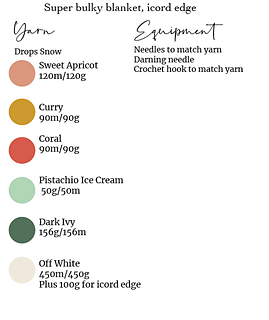 Super bulky blanket, icord edge
Yarn
Drops Snow
Sweet Apricot
120m/120g
Curry
90m/90g
Coral
90m/90g
Pistachio Ice Cream
50g/50m
Dark Ivy
156g/156m
Off White
450m/450g
Plus 100g for icord edge
Equipment
Needles to match yarn
Darning needle
Crochet hook to match yarn